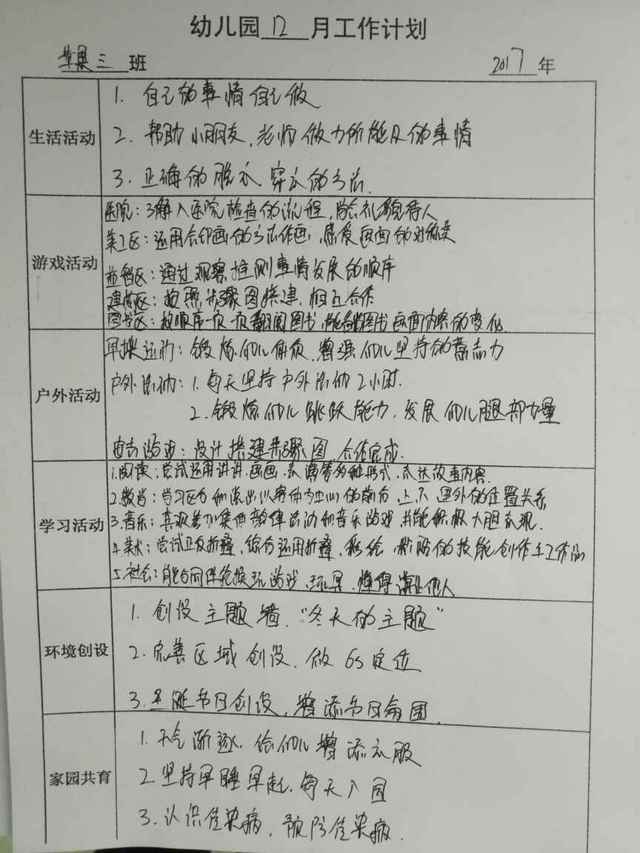 幼儿园 12 月工作计划
苹果三班 2017年
生活活动
1. 自己的事情自己做
2. 帮助小朋友,老师做力所能及的事情
3. 正确的脱衣、穿衣的方法
游戏活动
医院:了解入医院检查的流程,学会礼貌待人
美工区:运用合印画的方法作画,感受画面的对称美
益智区:通过观察推测事情发展的顺序
建构区:按照步骤图搭建,相互合作
图书区:按顺序一页一页翻阅图书,能图书画面内容的变化
户外活动
早操活动:锻炼幼儿体质,增强幼儿坚持的意志力
户外活动:1. 每天坚持户外活动2小时.
2. 锻炼幼儿跳跃能力,发展幼儿腿部力量
自主游戏:设计搭建步骤图,合作完成.
学习活动
1.阅读:尝试运用讲讲、画画、表演等多种形式,表达故事内容.
2.数学:学习区分和说出以客体为中心的前后、上下、里外的位置关系
3.音乐:喜欢参加集体韵律活动和音乐游戏,并能积极大胆表现.
4.美术:尝试正反折叠,综合运用折叠、粘贴的技能创作手工作品
5.社会:能与同伴轮换玩游戏、玩具,懂得谦让他人
环境创设
1. 创设主题墙:“冬天的主题”
2. 完善区域创设,做6s定位
3. 圣诞节日创设,增添节日氛围.
家园共育
1. 天气渐凉,给幼儿增添衣服
2. 坚持早睡早起,每天入园
3. 认识传染病,预防传染病.